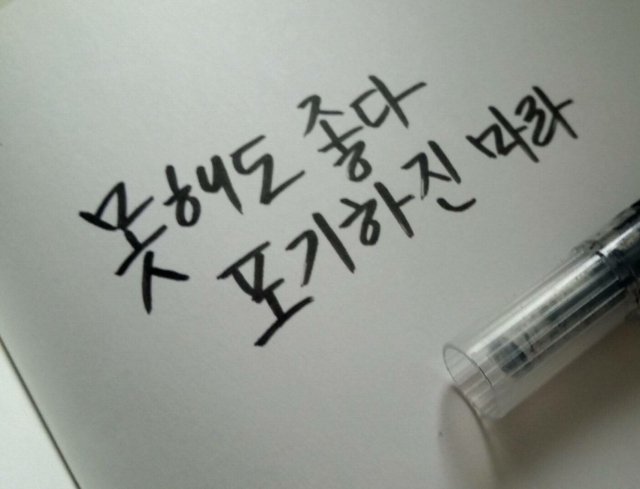 못해도 좋다
포기하진 마라